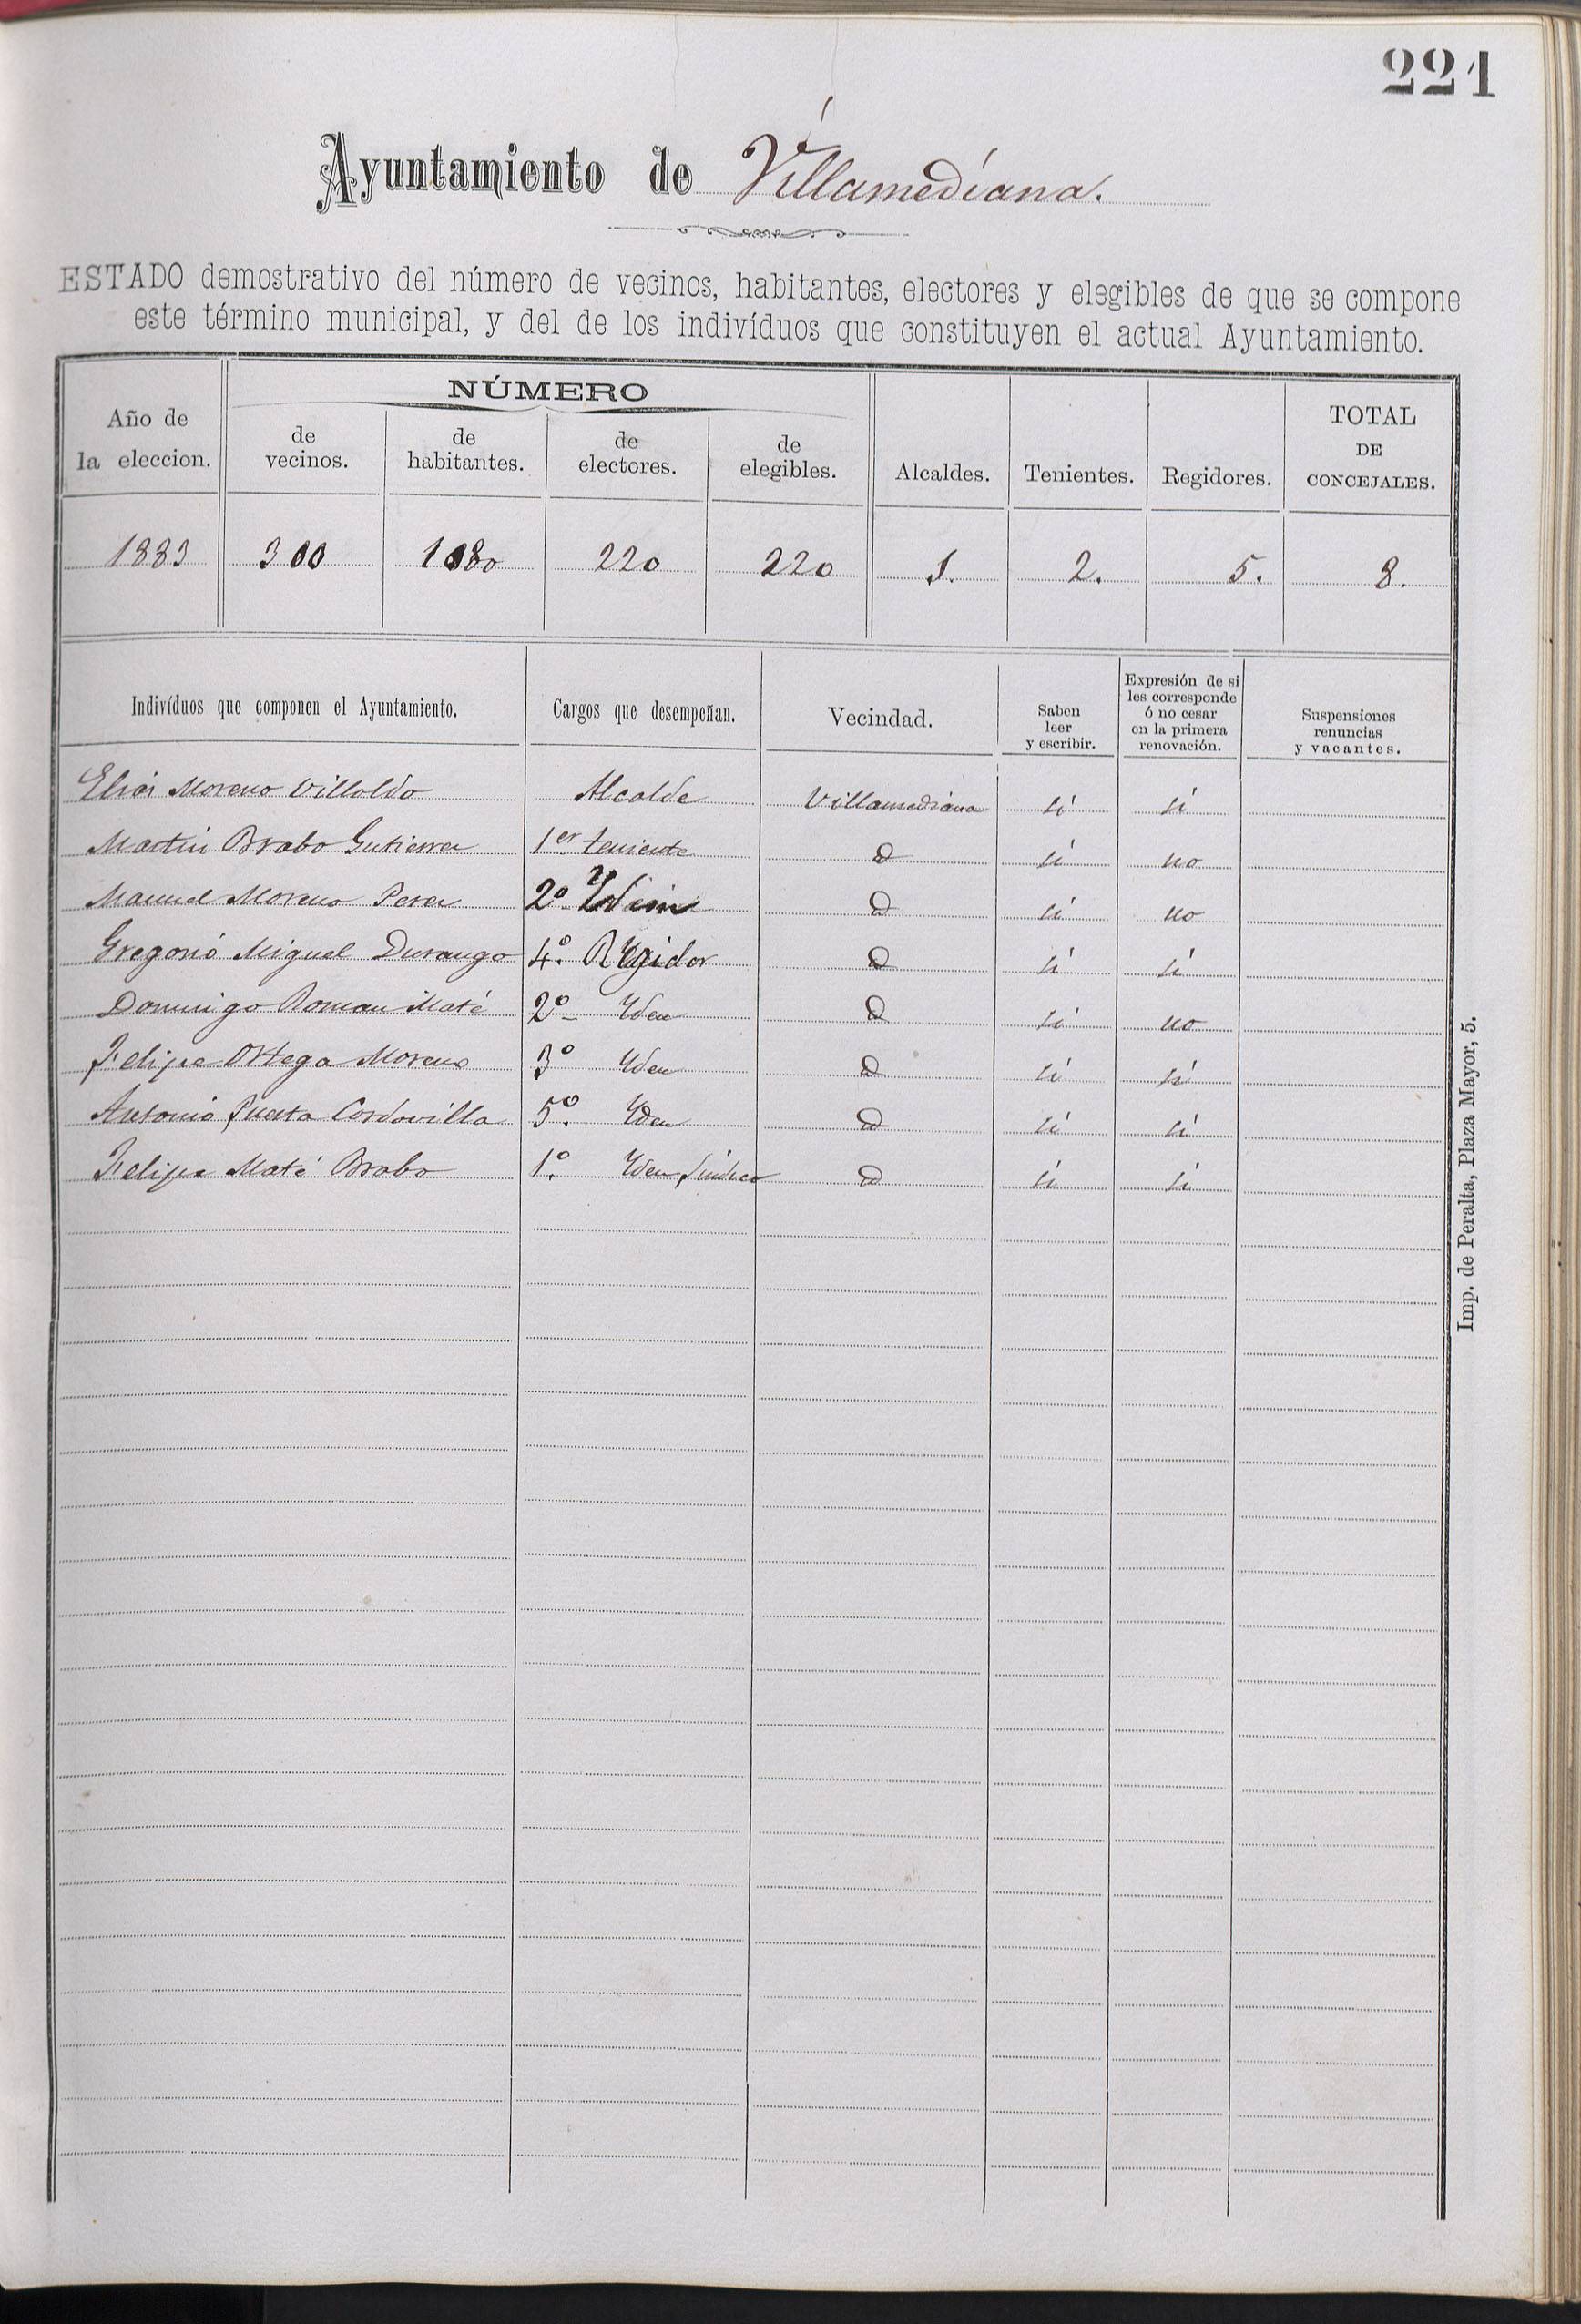 221
Ayuntamiento de Villamediana.
ESTADO demostrativo del número de vecinos, habitantes, electores y elegibles de que se compone
este término municipal, y del de los indivíduos que constituyen el actual Ayuntamiento.
Año de la eleccion. NÚMERO de vecinos. de habitantes. de electores. de elegibles. Alcaldes. Tenientes. Regidores. TOTAL DE CONCEJALES.
1883 300 1080 220 220 1. 2. 5. 8.
Indivíduos que componen el Ayuntamiento. Cargos que desempeñan. Vecindad. Saben leer y escribir. Expresión de si les corresponde ó no cesar en la primera renovación. Suspensiones renuncias y vacantes.
Elias Moreno Villoldo Alcalde Villamediana si si
Martin Brabo Gutierrez 1er teniente D si no
Manuel Moreno Perez 2º Ydem D si no
Gregorio Miguel Durango 4º. Regidor D si si
Domingo Roman Maté 2º Yden D si no
Felipe Ortega Moreno 3º Yden D si si
Antonio Puerta Cordovilla 5º. Yden D si si
Felipe Maté Brabo 1º. Yden Sindico D si si
Imp. de Peralta, Plaza Mayor, 5.